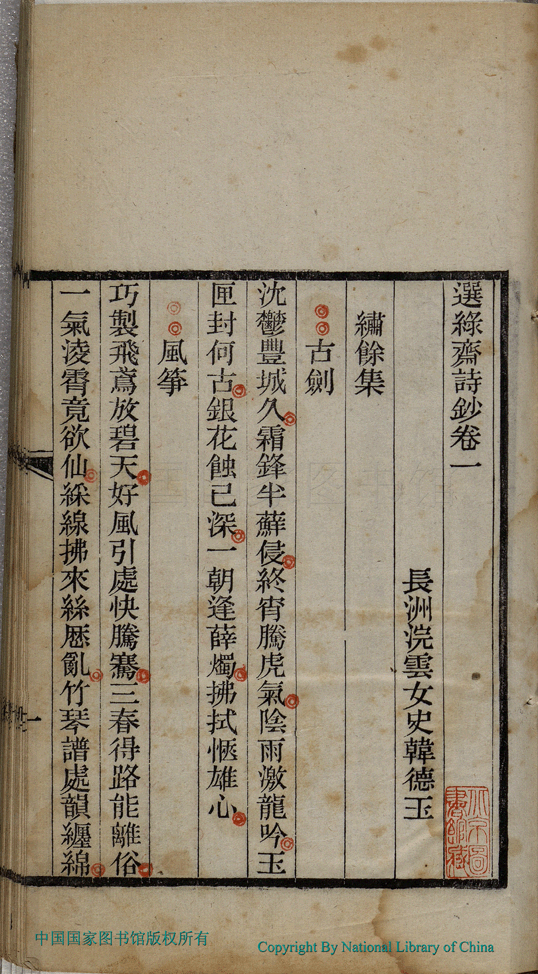 選綠齋詩鈔卷一
長洲浣雲女史韓德玉
繡餘集
古劍
沈鬱豐城久霜鋒半蘚侵終宵騰虎氣陰雨激龍吟玉
匣封何古銀花蝕已深一朝逢薛燭拂拭愜雄心
風箏
巧製飛鳶放碧天好風引處快騰騫三春得路能離俗
一氣淩霄竟欲仙綵線拂來絲歷亂竹琴譜處韻纏綿
中国国家图书馆版权所有
Copyright By National Library of China